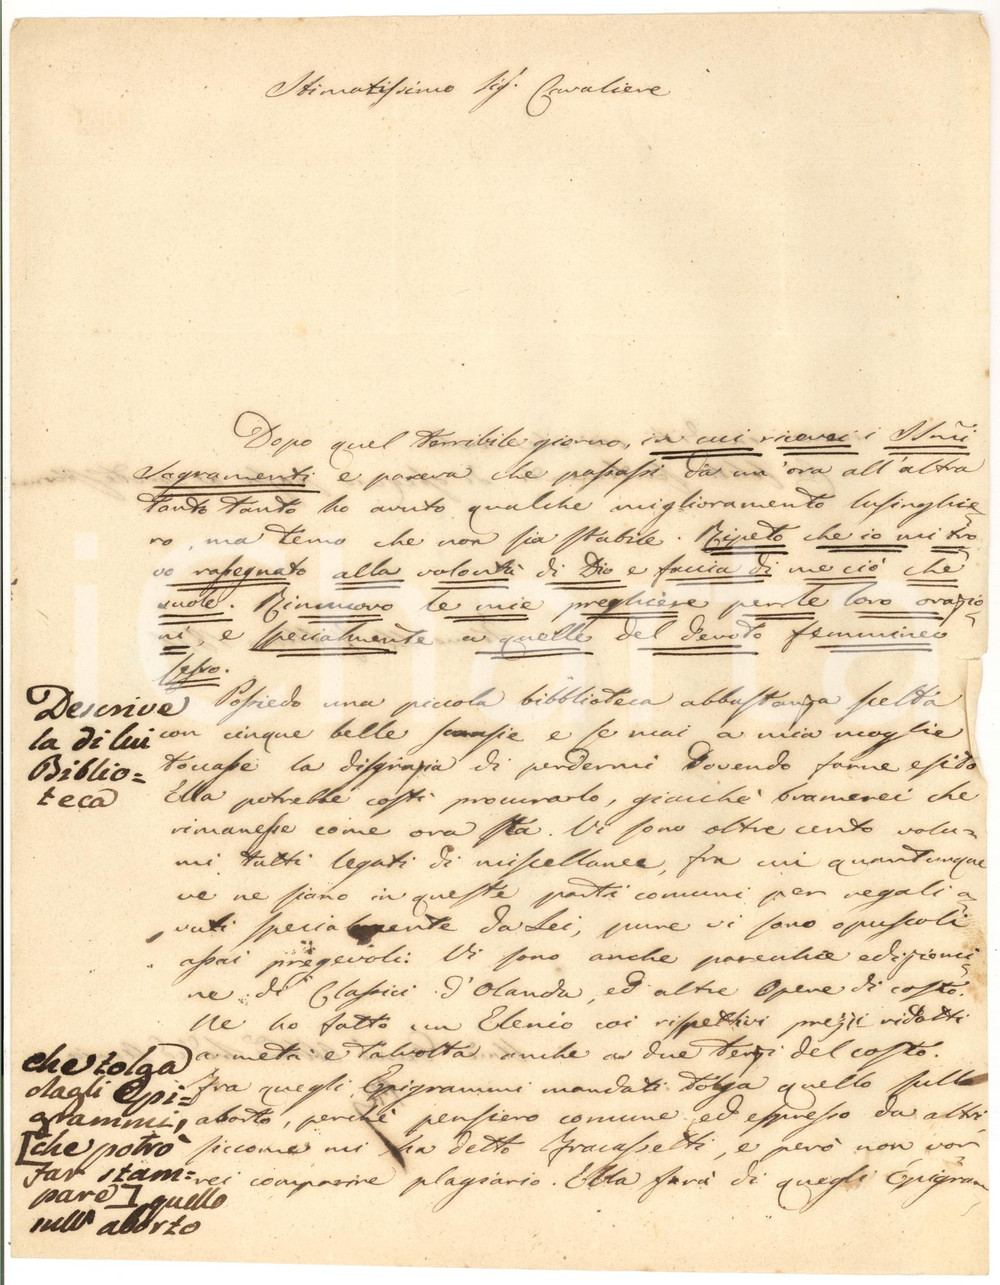 Stimatissimo Sig.r Cavaliere
Dopo quel terribile giorno, in cui ricevei i SSmi
Sagramenti e pareva che passassi da un'ora all'altra
tanto tanto ho avuto qualche miglioramento lusinghie=
ro, ma temo che non sia stabile. Ripeto che io mi tro
vo rassegnato alla volontà di Dio e faccia di me ciò che
vuole. Rinnuovo le mie preghiere per le loro orazio=
ni, e specialmente a quelle del devoto femmineo
sesso.
Possiedo una piccola biblioteca abbastanza scelta
con cinque belle scansie e se mai a mia moglie
toccasse la disgrazia di perdermi dovendo farne esito
Ella potrebbe costì procurarlo, giacchè bramerei che
rimanesse come ora sta. Vi sono oltre cento volu=
mi tutti legati di miscellanee, fra cui quantunque
ve ne siano in queste parti comuni per regali a=
vuti specialmente da Lei, pure vi sono opuscoli
assai pregevoli. Vi sono anche parecchie edizioni
ne di Classici d'Olanda, ed altre Opere di costo.
Ne ho fatto un Elenco coi rispettivi prezzi ridotti
a metà e talvolta anche a due terzi del costo.
Fra quegli Epigrammi mandati tolga quello sullo
aborto, perchè pensiero comune ed espresso da altri
siccome mi ha detto Fracassetti, e però non vor
rei comparire plagiario. Ella farà di quegli Epigram
Descrive
la di lui
Biblio=
teca
che tolga
dagli Epi=
grammi,
[che potrò
far stam=
pare] quello
sull'aborto
iCharta